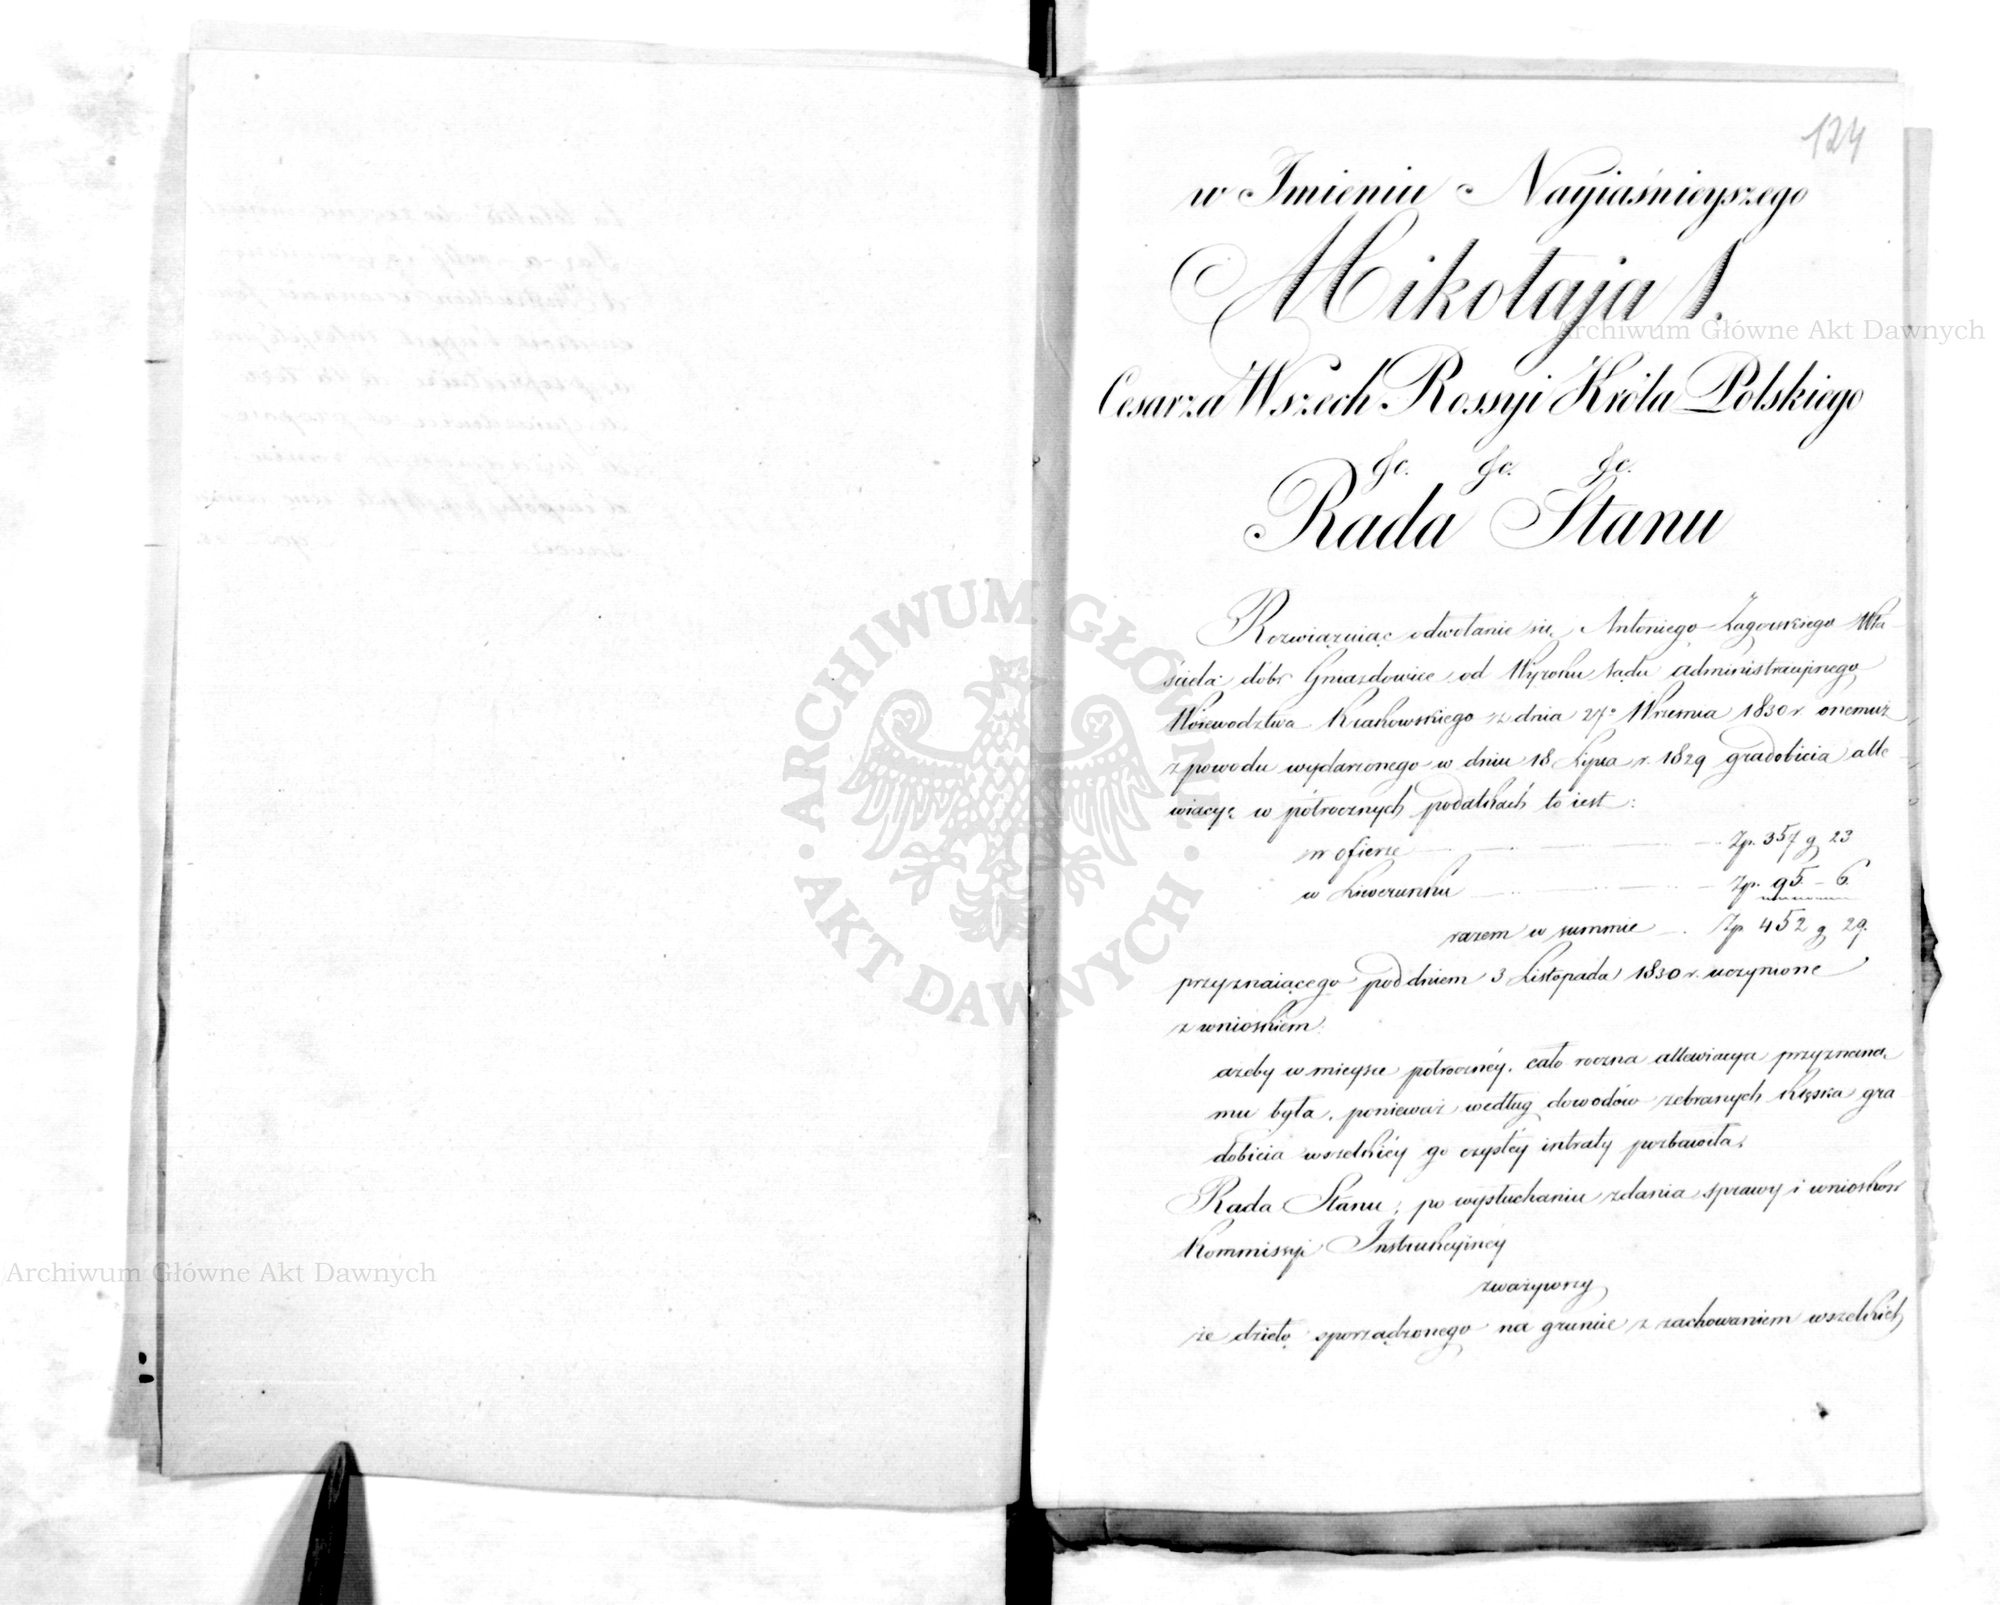 124
w Imieniu Nayiaśnieyszego
Mikołaja I.
Cesarza Wszech Rossyi Króla Polskiego
&c. &c. &c.
Rada Stanu
Rozwiązuiąc odwołanie się Antoniego Żagowskiego Wła-
ściciela dóbr Gniazdowice od Wyroku Sądu administracyjnego
Woiewodztwa Krakowskiego z dnia 27o Wrzesnia 1830 r. onemuż
z powodu wydarzonego w dniu 18 Lipca r. 1829 gradobicia alle-
wiacyę w półrocznych podatkach to iest:
w ofierze Zp. 357 g 23
w Liwerunku Zp. 95 - 6
razem w summie Zp. 452 g 29.
przyznaiącego pod dniem 3 Listopada 1830 r. uczynione
z wnioskiem:
ażeby w mieysce połroczney, cało roczna allewiacya przyznaną
mu była, ponieważ według dowodów zebranych klęska gra-
dobicia wszelkiéy go czystéy intraty pozbawiła;
Rada Stanu, po wysłuchaniu zdania sprawy i wniosków
Kommissyi Instrukcyinéy
zważywszy
że dzieło sporządzonego na gruncie z zachowaniem wszelkich
Archiwum Główne Akt Dawnych
Archiwum Główne Akt Dawnych
ARCHIWUM GŁÓWNE · AKT DAWNYCH ·